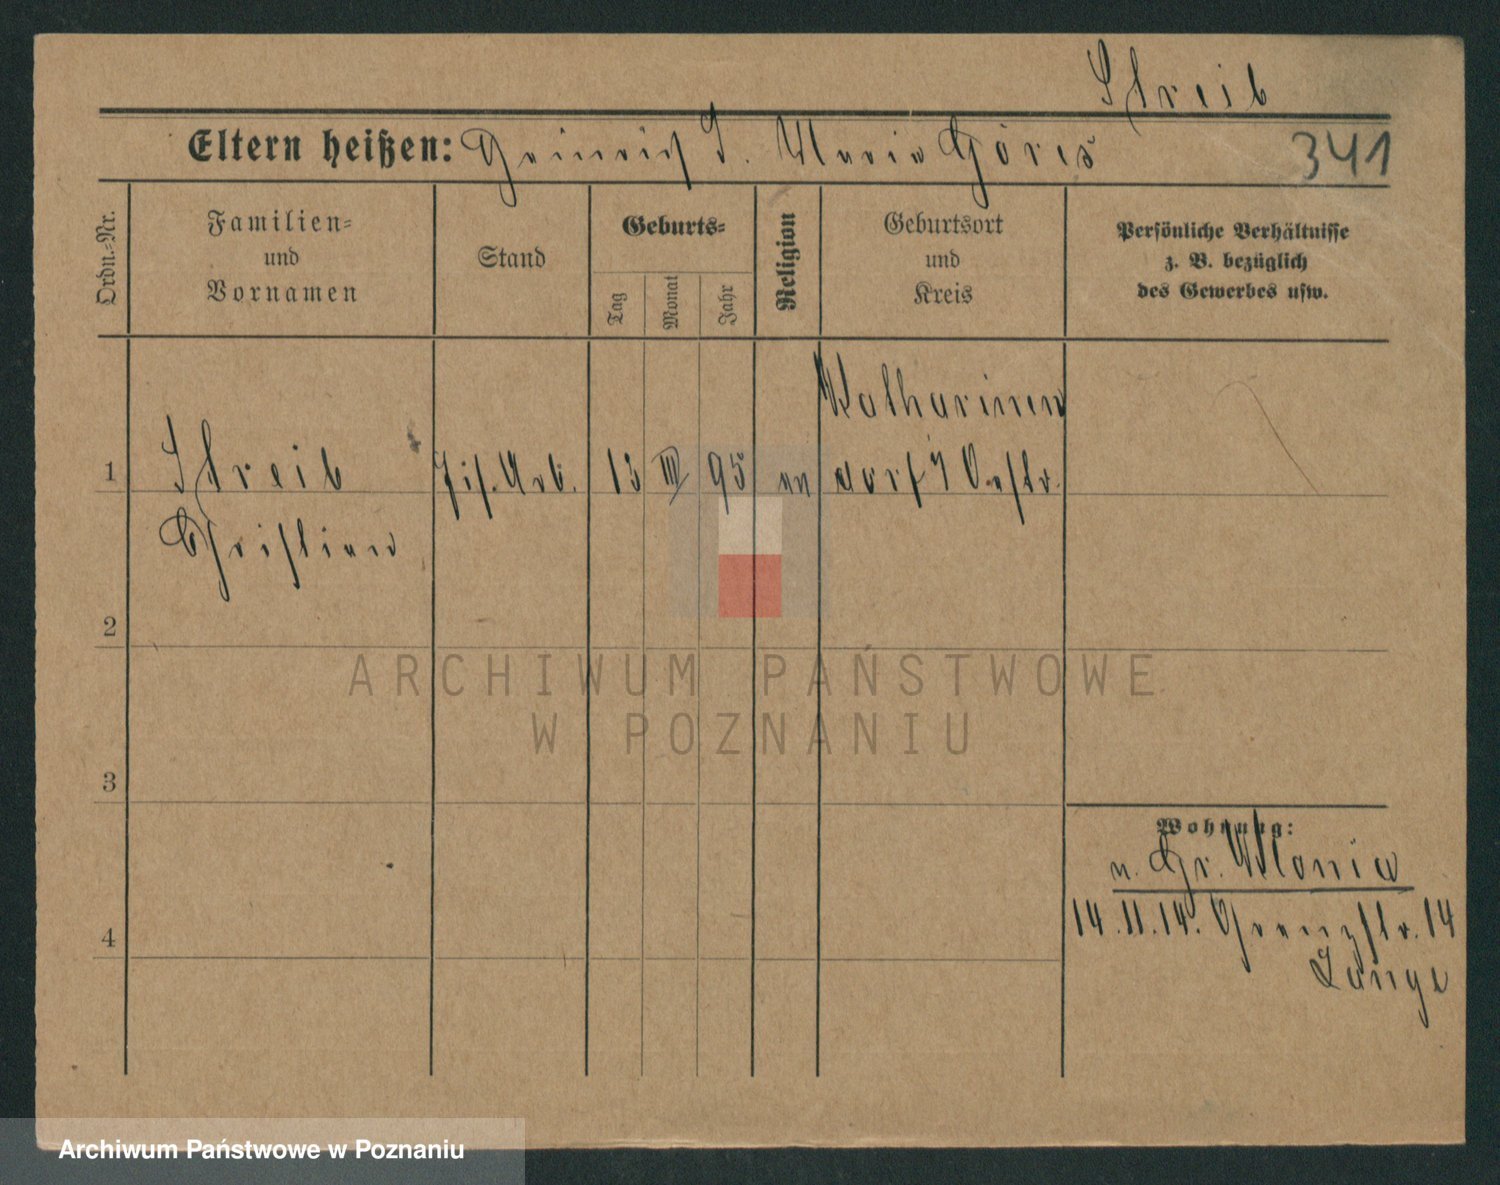 Streib
Eltern heißen: Heinrich S. Maria Göres
341
Ordn.-Nr.
Familien-
und
Vornamen
Stand
Geburts-
Tag
Monat
Jahr
Religion
Geburtsort
und
Kreis
Persönliche Verhältnisse
z. B. bezüglich
des Gewerbes usw.
Katharinen
1 Streib Zis. Arb. 13 III 95 ev dorf Oestr.
Christian
2
3
4
Wohnung:
n. Gr.
14.11.14. Grenzstr. 14
Lange
ARCHIWUM PAŃSTWOWE
W POZNANIU
Archiwum Państwowe w Poznaniu